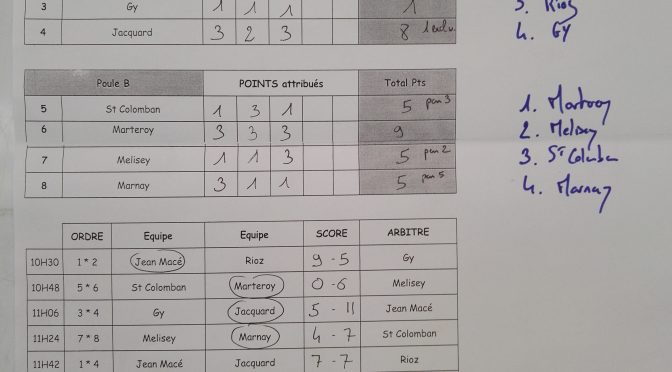 3 Gy 1 1 1 1
3. Rioz
4 Jacquard 3 2 3 8
4. GY
Poule B POINTS attribués Total Pts
5 St Colomban 1 3 1 5 pen 3
1. Marteroy
6 Marteroy 3 3 3 9
2. Melisey
7 Melisey 1 1 3 5 pen 2
3. St Colomban
8 Marnay 3 1 1 5 pen 5
4. Marnay
ORDRE Equipe Equipe SCORE ARBITRE
10H30 1 * 2 Jean Macé Rioz 9 - 5 Gy
10H48 5 * 6 St Colomban Marteroy 0 - 6 Melisey
11H06 3 * 4 Gy Jacquard 5 - 11 Jean Macé
11H24 7 * 8 Melisey Marnay 4 - 7 St Colomban
11H42 1 * 4 Jean Macé Jacquard 7 - 7 Rioz